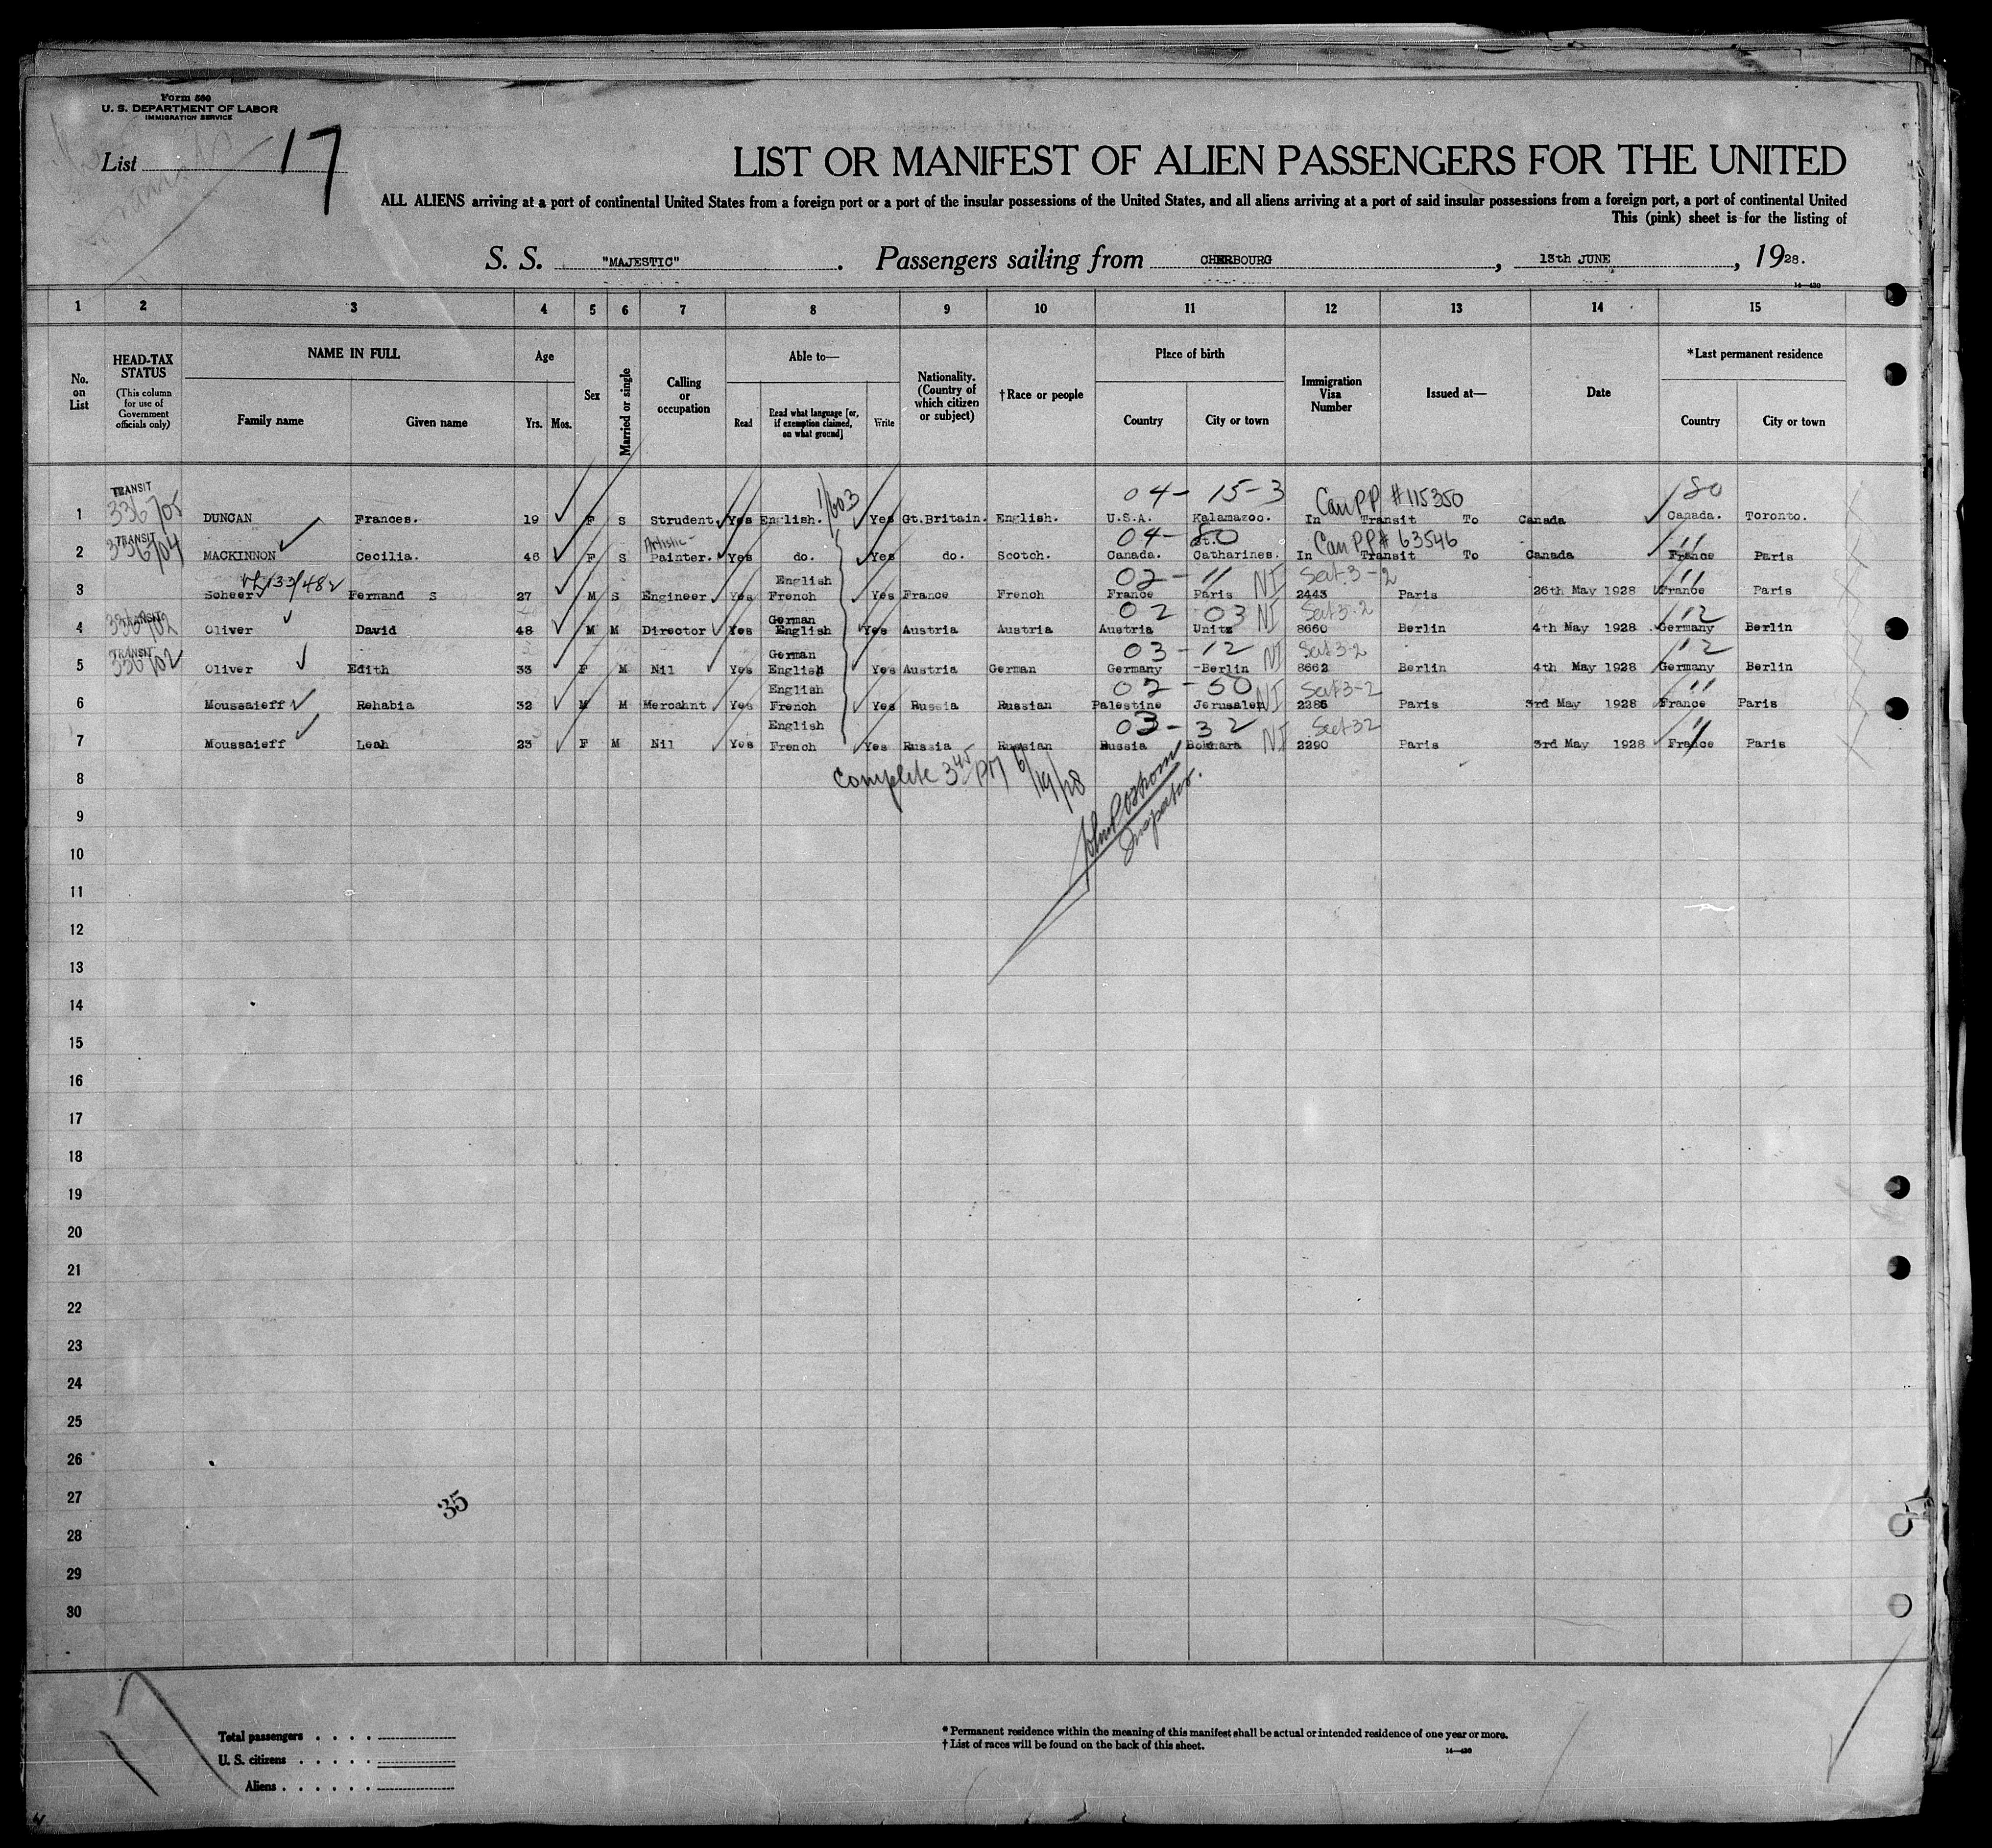 Form 500
U. S. DEPARTMENT OF LABOR
IMMIGRATION SERVICE
List 17
LIST OR MANIFEST OF ALIEN PASSENGERS FOR THE UNITED
ALL ALIENS arriving at a port of continental United States from a foreign port or a port of the insular possessions of the United States, and all aliens arriving at a port of said insular possessions from a foreign port, a port of continental United
This (pink) sheet is for the listing of
S. S. "MAJESTIC". Passengers sailing from CHERBOURG, 13th JUNE, 1928.
14—430
1 2 3 4 5 6 7 8 9 10 11 12 13 14 15
No. on List
HEAD-TAX STATUS (This column for use of Government officials only)
NAME IN FULL Family name Given name
Age Yrs. Mos.
Sex
Married or single
Calling or occupation
Able to— Read Read what language [or, if exemption claimed, on what ground] Write
Nationality. (Country of which citizen or subject)
†Race or people
Place of birth Country City or town
Immigration Visa Number
Issued at—
Date
*Last permanent residence Country City or town
TRANSIT 1/603 04- 15-3 Can PP #115350 180
1 336/05 DUNCAN Frances. 19 F S Strudent. Yes English. Yes Gt.Britain. English. U.S.A. Kalamazoo. In Transit To Canada Canada. Toronto.
TRANSIT Artistic- 04- 80 St. Can PP# 63546 11
2 336/04 MACKINNON Cecilia. 46 F S Painter. Yes do. Yes do. Scotch. Canada. Catharines. In Transit To Canada France Paris
133/482 English 02 - 11 NI Sect.3-2 11
3 Scheer Fernand S 27 M S Engineer Yes French Yes France French France Paris 2443 Paris 26th May 1928 France Paris
TRANSIT German 02 03 NI Sect 3-2 12
4 336/02 Oliver David 48 M M Director Yes English Yes Austria Austria Austria Unitz 8660 Berlin 4th May 1928 Germany Berlin
TRANSIT German 03-12 NI Sect 3-2 12
5 336/02 Oliver Edith 33 F M Nil Yes English Yes Austria German Germany -Berlin 8662 Berlin 4th May 1928 Germany Berlin
English 02 - 50 NI Sect 3-2 11
6 Moussaieff Rehabia 32 M M Mercahnt Yes French Yes Russia Russian Palestine Jerusalem 2286 Paris 3rd May 1928 France Paris
English 03 - 32 NI Sect 32 11
7 Moussaieff Leah 23 F M Nil Yes French Yes Russia Russian Russia Bokhara 2290 Paris 3rd May 1928 France Paris
Complete 3 45 PM 6/19/28
8
Inspector.
9
10
11
12
13
14
15
16
17
18
19
20
21
22
23
24
25
26
27
35
28
29
30
17
Total passengers
U. S. citizens
Aliens
* Permanent residence within the meaning of this manifest shall be actual or intended residence of one year or more.
† List of races will be found on the back of this sheet.
14—430